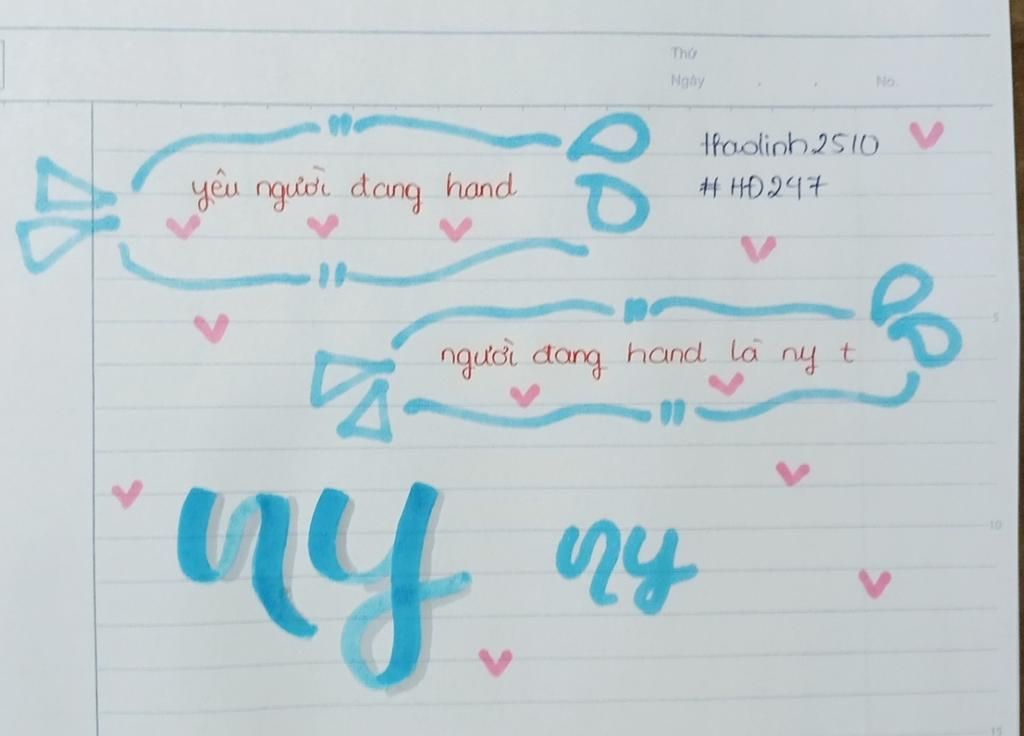 Thứ
Ngày . . No.
thaolinh2510
#HĐ247
yêu người đang hand
5
người đang hand là ny t
ny ny
10
15